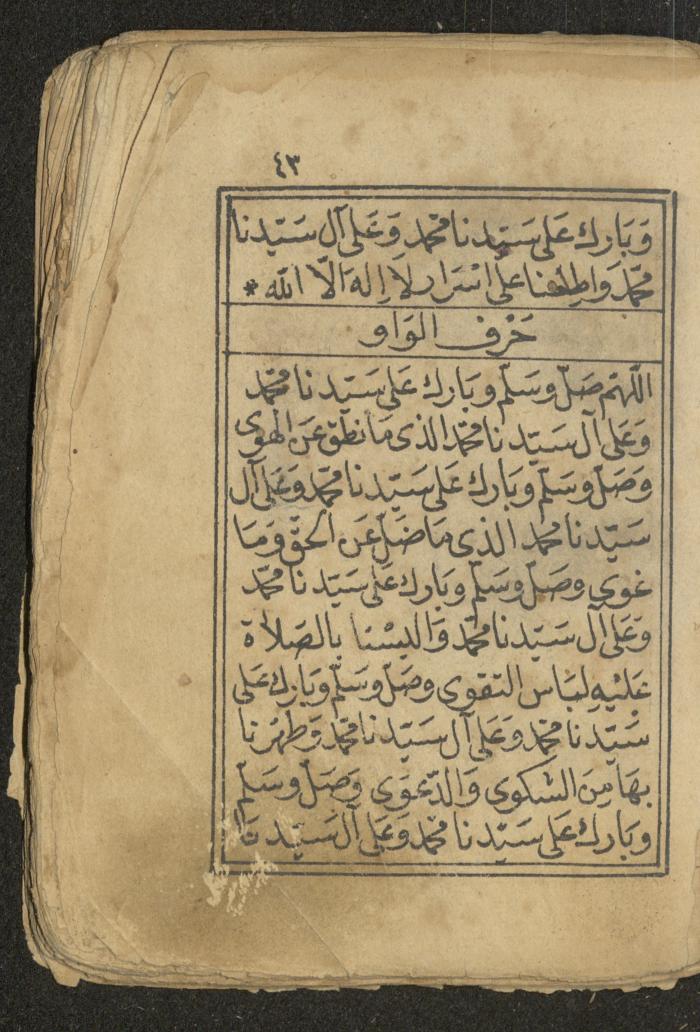 ٤٣
وَبَارك عَلى سَيّدنا محمّد وَعَلى آل سَيّدنا
محمّد وَاطلعنا على اسْرَار لا اِله الّا الله *
حَرْف الوَاو
اللّهمّ صَلّ وسَلّم وبَارك عَلى سَيّدنا محمّد
وَعَلى آل سَيّدنا محمّد الذى مَا نطق عَن الهوى
وَصَلّ وسَلّم وبَارك عَلى سَيّدنا محمّد وَعَلى آل
سَيّدنا محمّد الذى مَا ضَلّ عَن الحق وَمَا
غوى وصَلّ وسَلّم وبَارك عَلى سَيّدنا محمّد
وَعَلى آل سَيّدنا محمّد وَالبسْنا بالصَلاة
عَليْهِ لبَاس التقوى وصَلّ وسَلّم وبَارك عَلى
سَيّدنا محمّد وَعَلى آل سَيّدنا محمّد وَطهّرْنا
بهَا مِنَ الشكوى وَالدّعوَى وَصَلّ وسَلّم
وبَارك عَلى سَيّدنا محمّد وَعَلى آل سَيّدنا